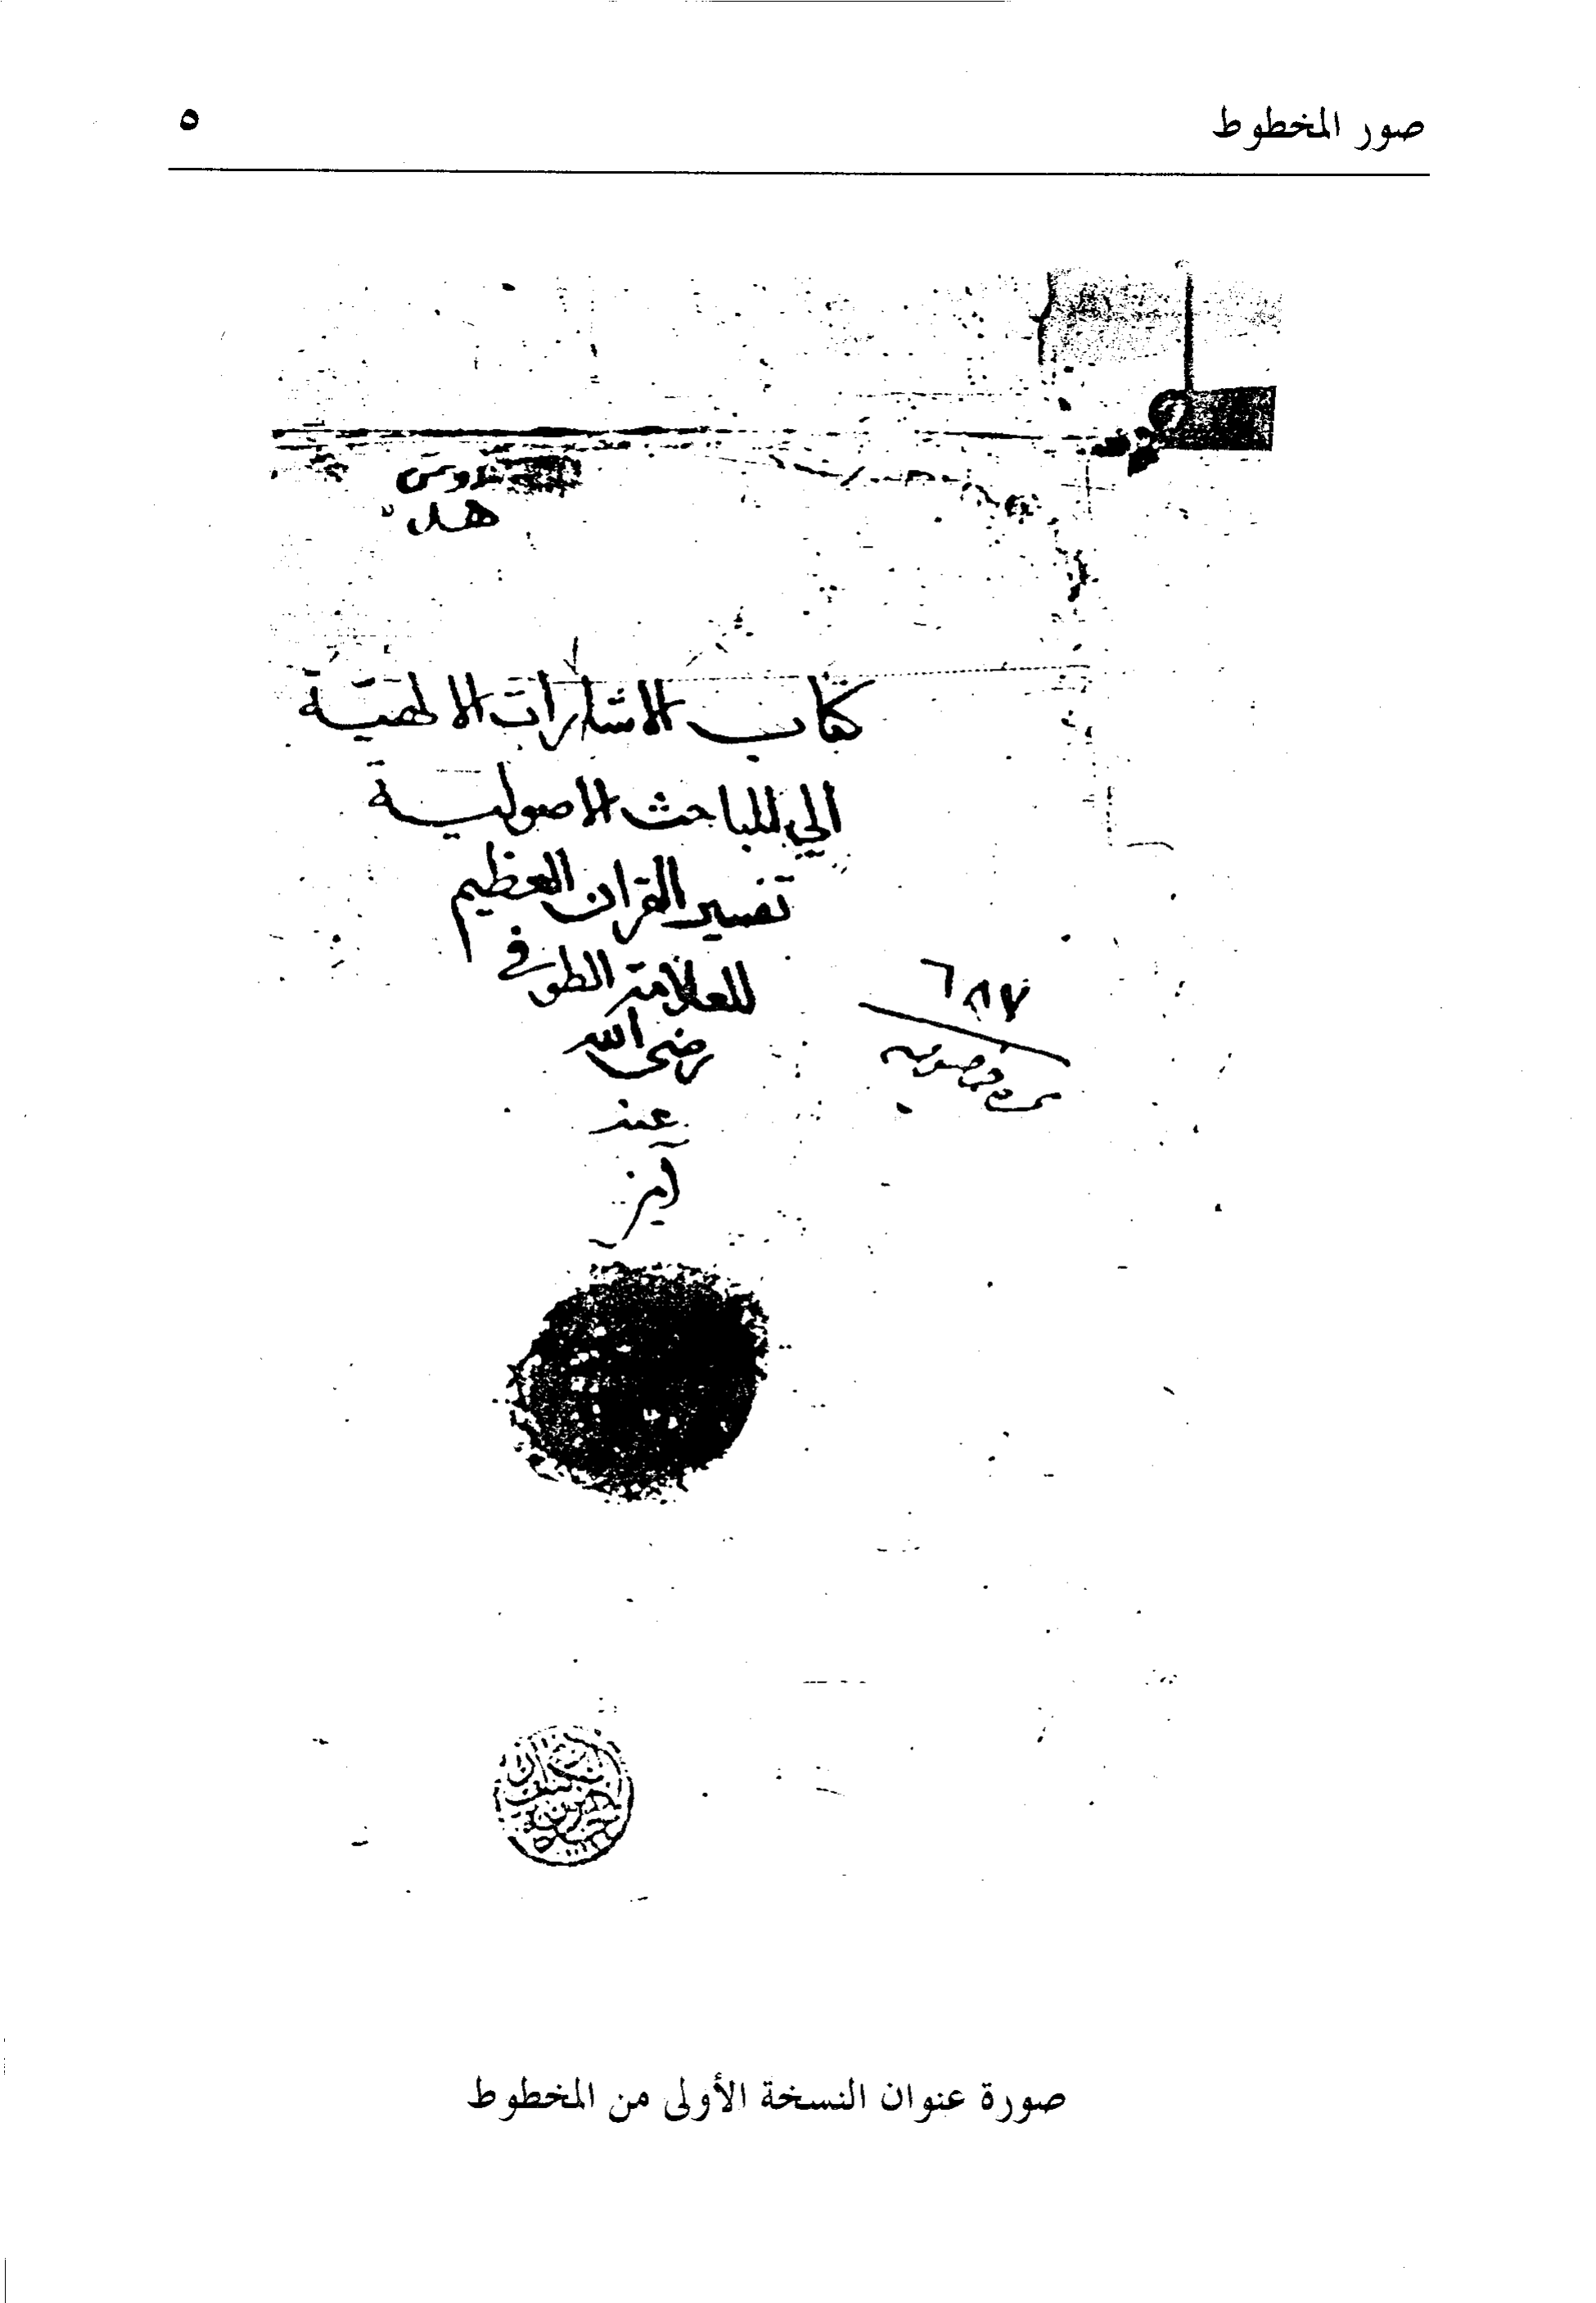 صور المخطوط
٥
كتاب الاشارات الالهية
الي المباحث الاصولية
تفسير القران العظيم
للعلامة الطوفي
رضي الله
عنه
٦٨٧
صورة عنوان النسخة الأولى من المخطوط